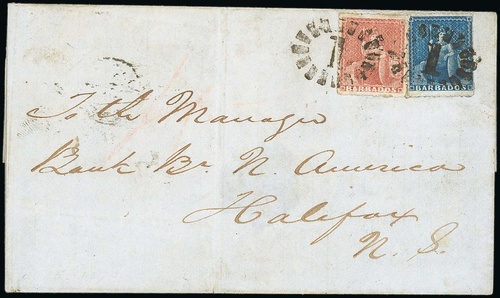 BARBADOS BARBADOS
1 1
To the Manager
Bank Br. N. America
Halifax
N. S.